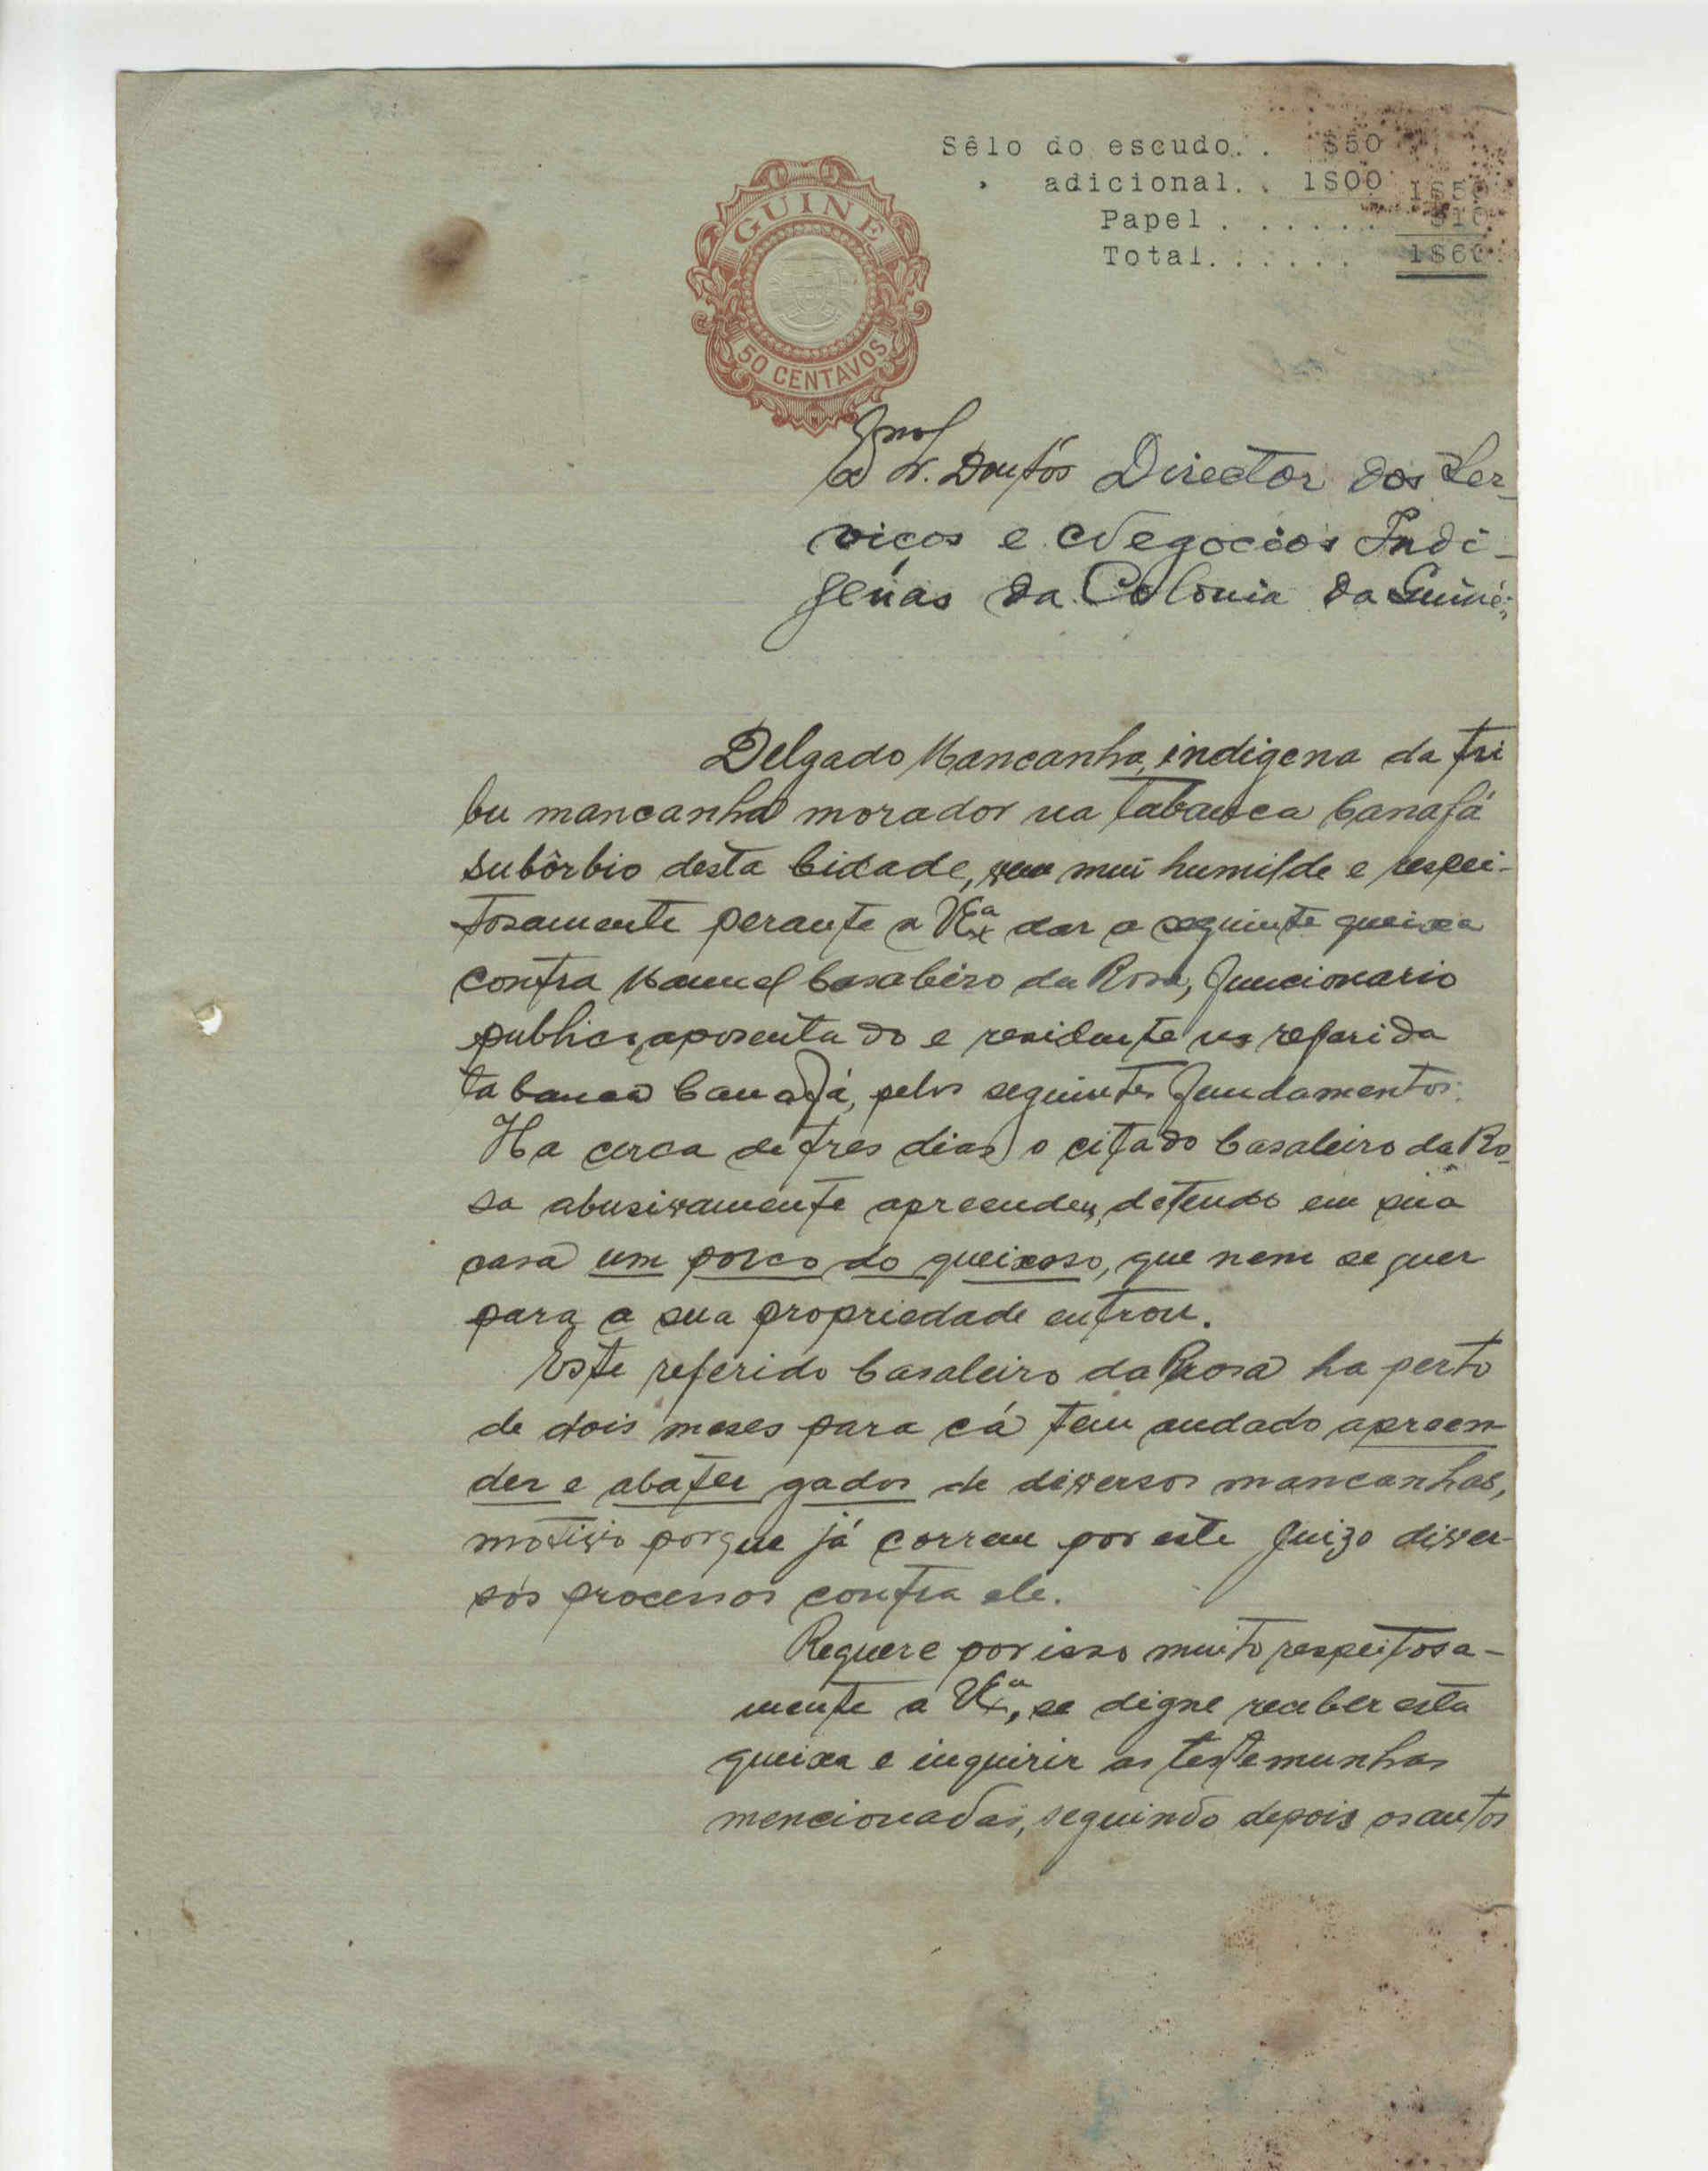 Sêlo do escudo. . $50
" adicional. . 1$00 1$50
Papel . . . . . . $10
Total. . . . . . 1$60
GUINE
50 CENTAVOS
Snr. Doutor Director dos Ser-
viços e Negocios Indi-
genas da Colonia da Guiné:
Delgado Mancanha, indigena da tri
bu mancanha morador na tabanca Canafá
subôrbio desta Cidade, vem mui humilde e respei-
tosamente perante a V.Exª dar a seguinte queixa
contra Manuel Casaleiro da Rosa, funcionario
publico, aposentado e residente na referida
tabanca Canafá, pelos seguintes fundamentos:
Ha cerca de tres dias o citado Casaleiro da Ro-
sa abusivamente apreendeu, detendo em sua
casa um porco do queixoso, que nem sequer
para a sua propriedade entrou.
Este referido Casaleiro da Rosa ha perto
de dois meses para cá tem andado apreen-
der e abater gados de diversos mancanhas,
motivo porque já correm por este Juizo diver-
sos processos contra ele.
Requere por isso muito respeitosa-
mente a V.Exª, se digne receber esta
queixa e inquirir as testemunhas
mencionadas, seguindo depois os autos